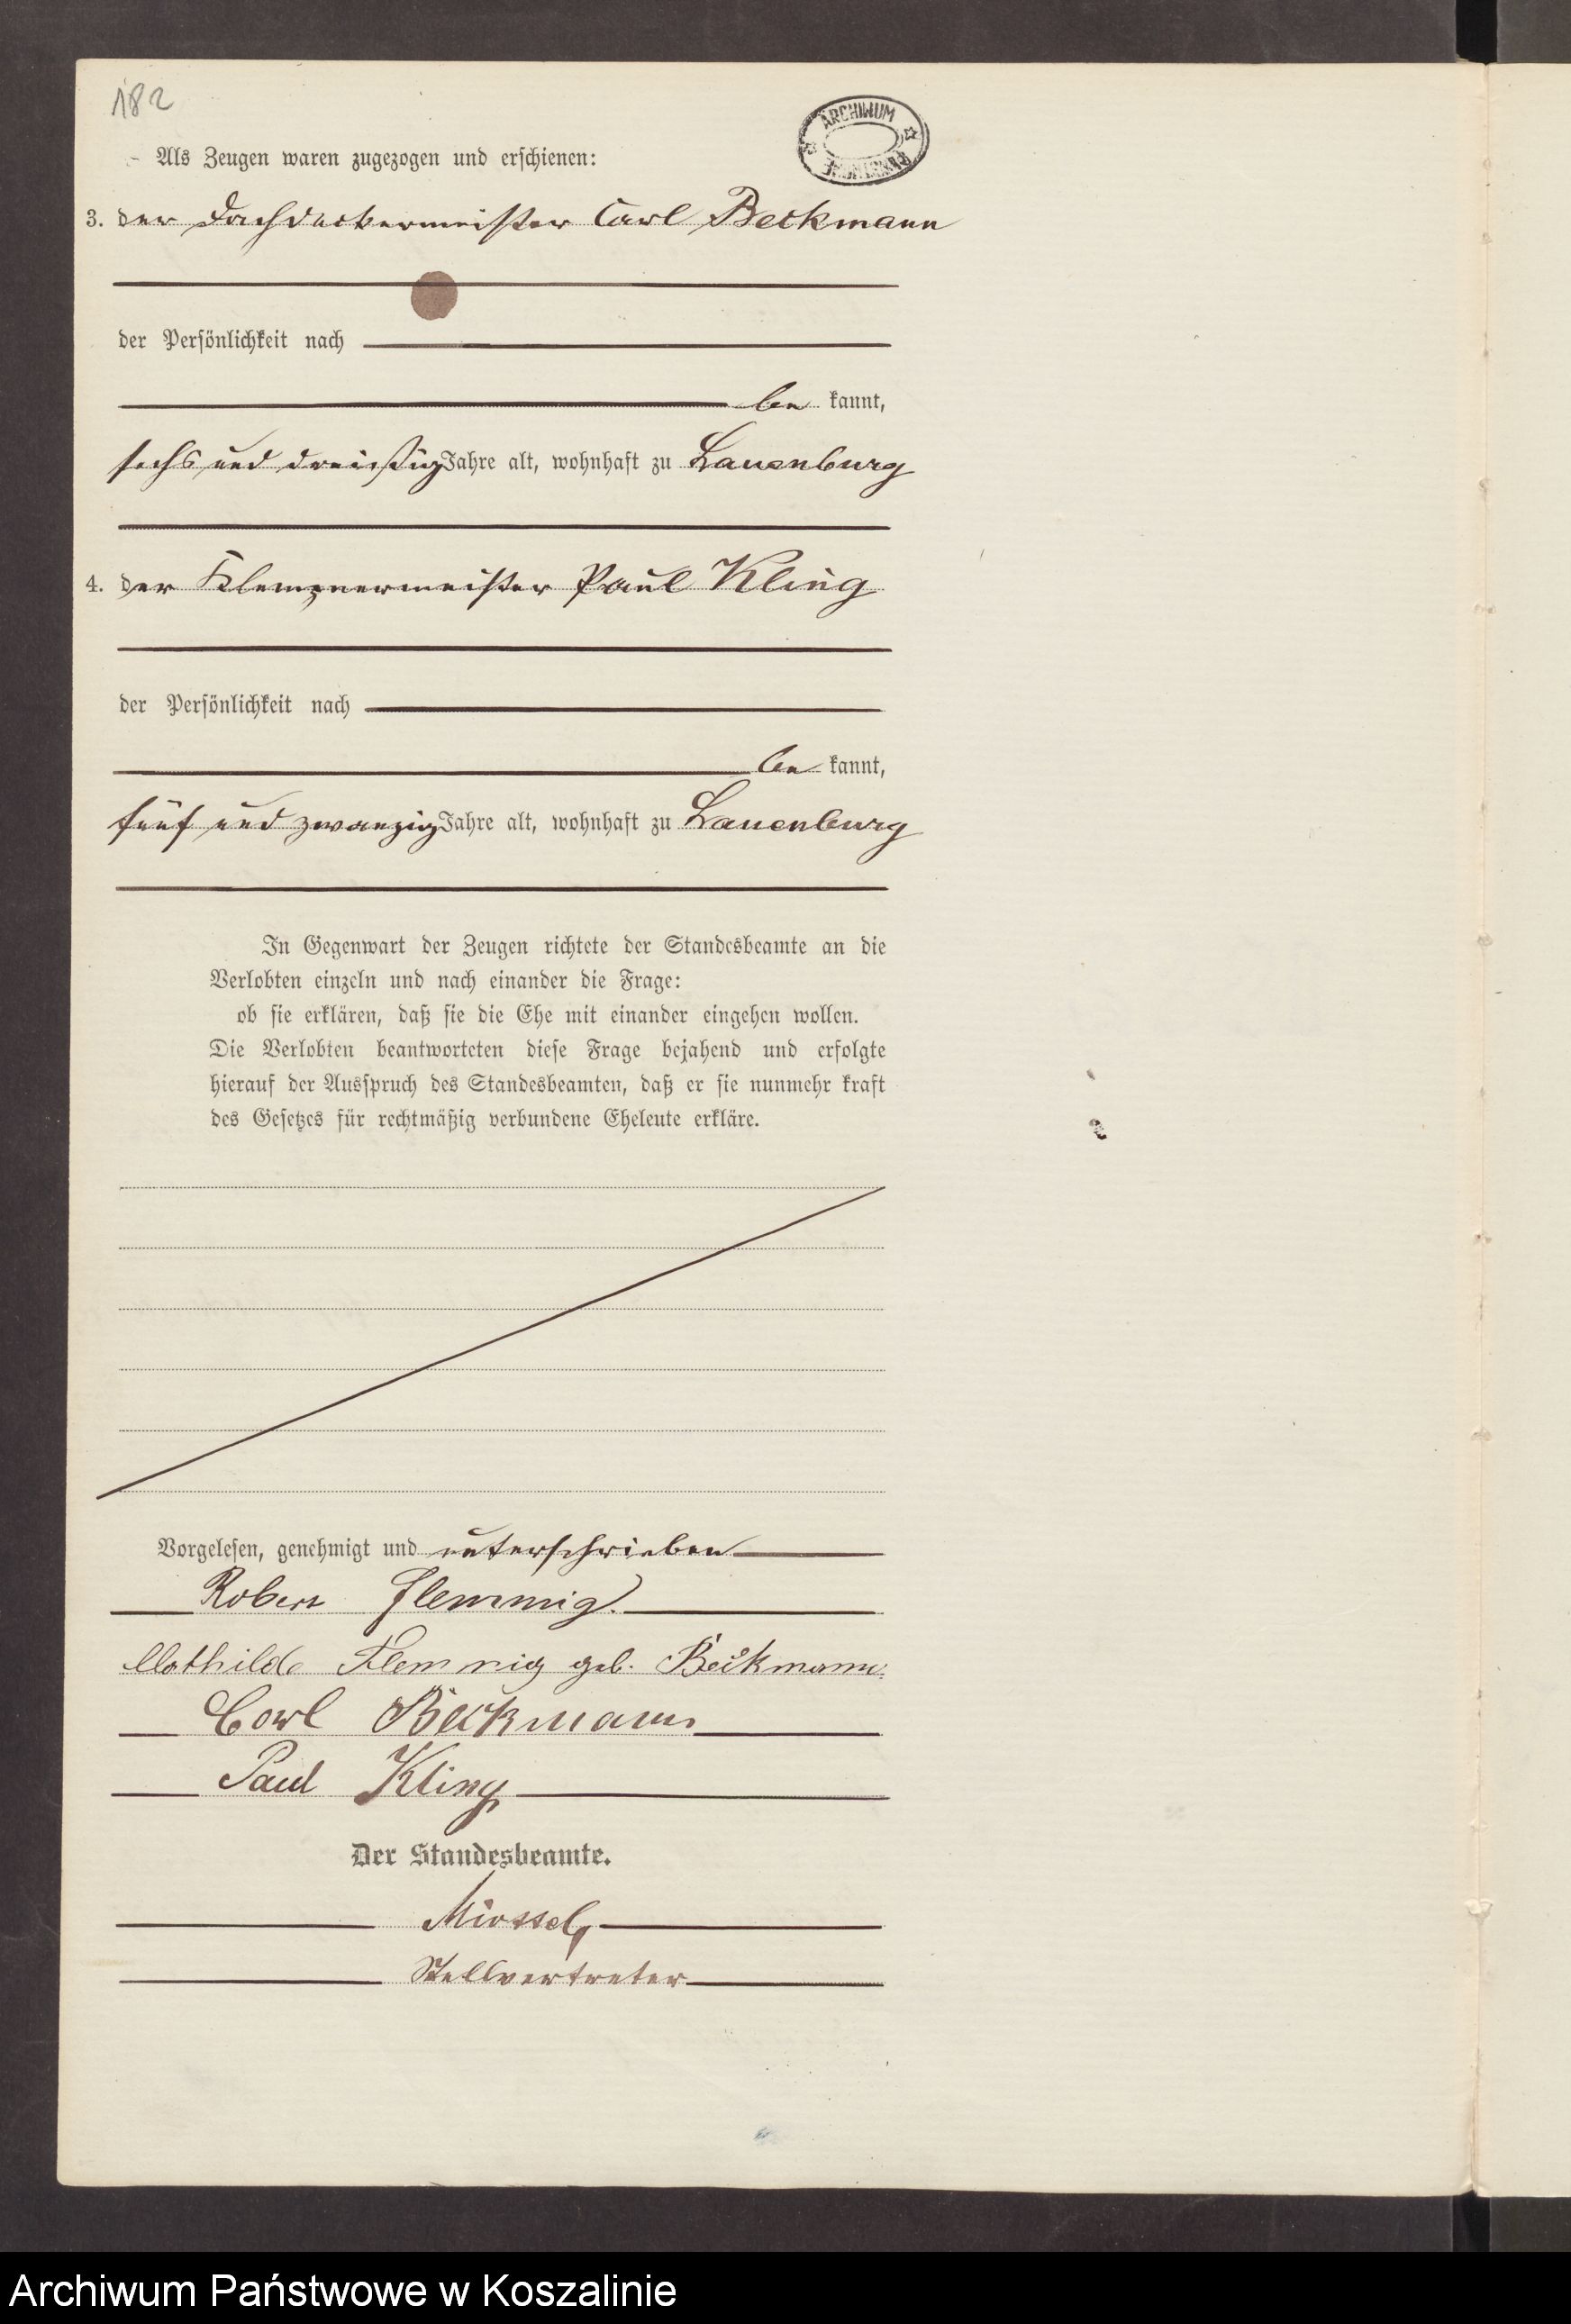 182
ARCHIWUM
Als Zeugen waren zugezogen und erschienen:
3. der Dachdeckermeister Carl Beckmann
der Persönlichkeit nach
be kannt,
sechs und dreißig Jahre alt, wohnhaft zu Lauenburg
4. der Klempnermeister Paul Kling
der Persönlichkeit nach
be kannt,
fünf und zwanzig Jahre alt, wohnhaft zu Lauenburg
In Gegenwart der Zeugen richtete der Standesbeamte an die
Verlobten einzeln und nach einander die Frage:
ob sie erklären, daß sie die Ehe mit einander eingehen wollen.
Die Verlobten beantworteten diese Frage bejahend und erfolgte
hierauf der Ausspruch des Standesbeamten, daß er sie nunmehr kraft
des Gesetzes für rechtmäßig verbundene Eheleute erkläre.
Vorgelesen, genehmigt und unterschrieben
Robert Flemmig.
Flemmig geb. Beckmann.
Carl Beckmann
Paul Kling
Der Standesbeamte.
Stellvertreter
Archiwum Państwowe w Koszalinie